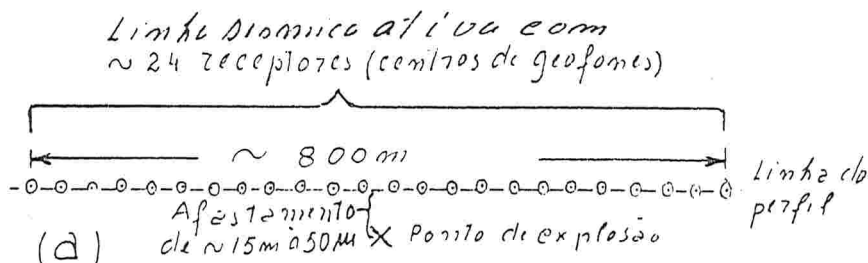 Linha sísmica ativa com
~ 24 receptores (centros de geofones)
~ 800 m
Linha do
perfil
Afastamento
de ~15m a 50m X Ponto de explosão
(a)